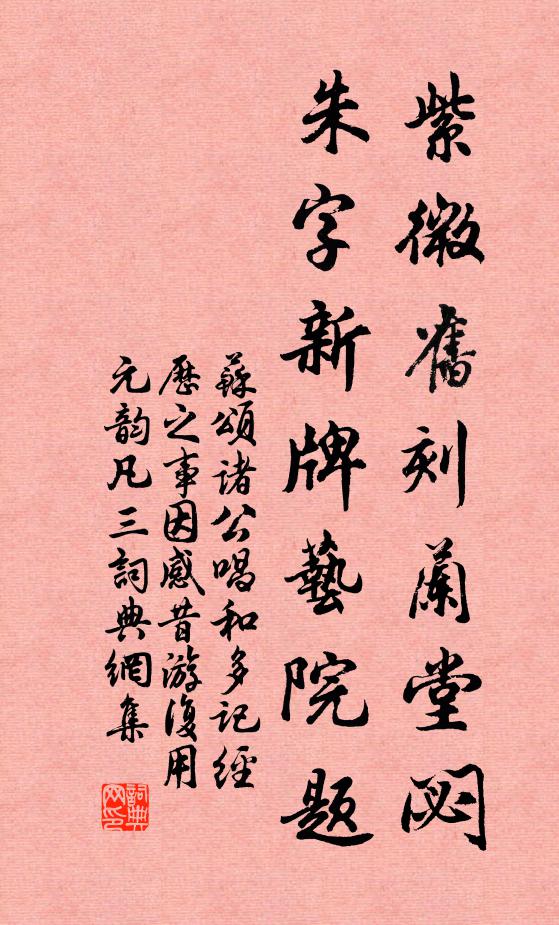 紫微舊刻蘭堂閟
朱字新牌藝院題
蘇頌諸公唱和多記經
歷之事因感昔游復用
元韵凡三詞典網集
詞典网印